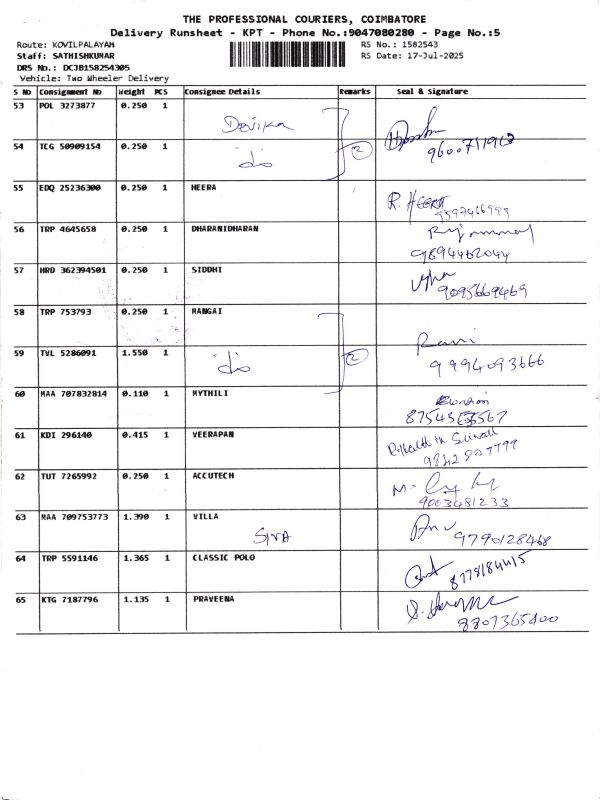 THE PROFESSIONAL COURIERS, COIMBATORE
Delivery Runsheet - KPT - Phone No.:9047080280 - Page No.:5
Route: KOVILPALAYAM RS No.: 1582543
Staff: SATHISHKUMAR RS Date: 17-Jul-2025
DRS No.: DCJB158254305
Vehicle: Two Wheeler Delivery
S No Consignment No Weight PCS Consignee Details Remarks Seal & Signature
53 POL 3273877 0.250 1 Devika
54 TCG 50909154 0.250 1 do 2 9600711913
55 EDQ 25236300 0.250 1 HEERA R. HEERA
9597466999
56 TRP 4645658 0.250 1 DHARANIDHARAN
9894462044
57 HRD 362394501 0.250 1 SIDDHI
9095669469
58 TRP 753793 0.250 1 MANGAI
59 TVL 5286091 1.550 1 do 2 Rani
9994093666
60 MAA 707832814 0.110 1 MYTHILI
61 KDI 296140 0.415 1 VEERAPAN
9842887799
62 TUT 7265992 0.250 1 ACCUTECH
9003481233
63 MAA 709753773 1.390 1 VILLA
SIVA 9790128468
64 TRP 5591146 1.365 1 CLASSIC POLO
8778184415
65 KTG 7187796 1.135 1 PRAVEENA
8807365400